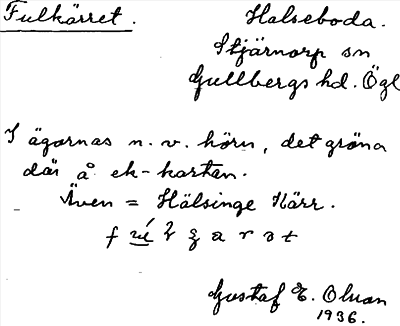 Fulkärret.
Halseboda.
Stjärnorp sn
Gullbergs hd. Ögl
I ägornas n. v. hörn, det gröna
där å ek-kartan.
Även = Hälsinge Kärr.
Gustaf E. Olsson
1936.